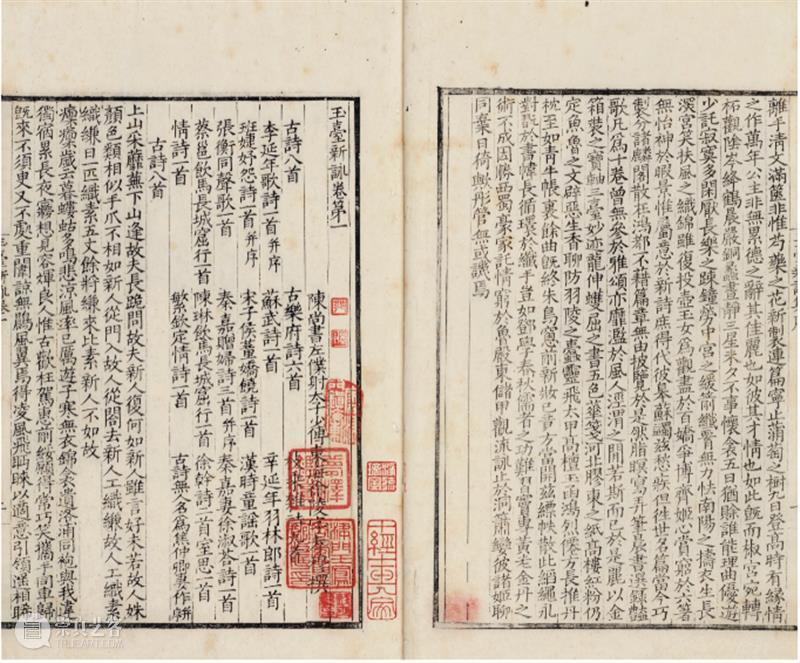 離乎清文滿篋非惟芍藥之花新製連篇寧止蒲萄之樹九日登高時有緣情
之作萬年公主非無累德之辭其佳麗也如彼其才情也如此既而椒宮宛轉
柘觀陰岑絳鶴晨嚴銅蠡晝靜三星未夕不事懷衾五日猶賒誰能理曲優遊
少託寂寞多閑厭長樂之疎鐘勞中宮之緩箭纖腰無力怯南陽之擣衣生長
深宮笑扶風之織錦雖復投壺玉女為觀盡於百嬌爭博齊姬心賞窮於六箸
無怡神於暇景惟屬意於新詩庶得代彼皋蘇蠲茲愁疾但往世名篇當今巧
製分諸麟閣散在鴻都不藉篇章無由披覽於是然脂暝寫弄筆晨書選錄豔
歌凡為十卷曾無參於雅頌亦靡濫於風人涇渭之間若斯而已於是麗以金
箱裝之寶軸三臺妙迹龍伸蠖屈之書五色華箋河北膠東之紙高樓紅粉仍
定魚魯之文辟惡生香聊防羽陵之蠹靈飛太甲高擅玉函鴻烈僊方長推丹
枕至如青牛帳裏餘曲既終朱鳥窗前新妝已竟方當開茲縹帙散此縚繩永
對翫於書幃長循環於纖手豈如鄧學春秋儒者之功難習竇專黃老金丹之
術不成因勝西蜀豪家託情窮於魯殿東儲甲觀流詠止於洞簫孌彼諸姬聊
同棄日猗歟彤管無或譏焉
玉臺新詠卷第一
陳尚書左僕射太子少傅東海徐陵字孝穆撰
古詩八首 古樂府詩六首
李延年歌詩一首并序 蘇武詩一首 辛延年羽林郎詩一首
班婕妤怨詩一首并序 宋子侯董嬌嬈詩一首 漢時童謡歌一首
張衡同聲歌一首 秦嘉贈婦詩三首并序 秦嘉妻徐淑答詩一首
蔡邕飲馬長城窟行一首 陳琳飲馬長城窟行一首 徐幹詩二首室思一首
情詩一首 繁欽定情詩一首 古詩無名人為焦仲卿妻作并序
古詩八首
上山采蘼蕪下山逢故夫長跪問故夫新人復何如新人雖言好未若故人姝
顏色類相似手爪不相如新人從門入故人從閤去新人工織縑故人工織素
織縑日一匹織素五丈餘將縑來比素新人不如故
凜凜歲云暮螻蛄多鳴悲涼風率已厲遊子寒無衣錦衾遺洛浦同袍與我違
獨宿累長夜夢想見容輝良人惟古歡枉駕惠前綏願得常巧笑攜手同車歸
既來不須臾又不處重闈諒無鷐風翼焉得凌風飛眄睞以適意引領遙相睎